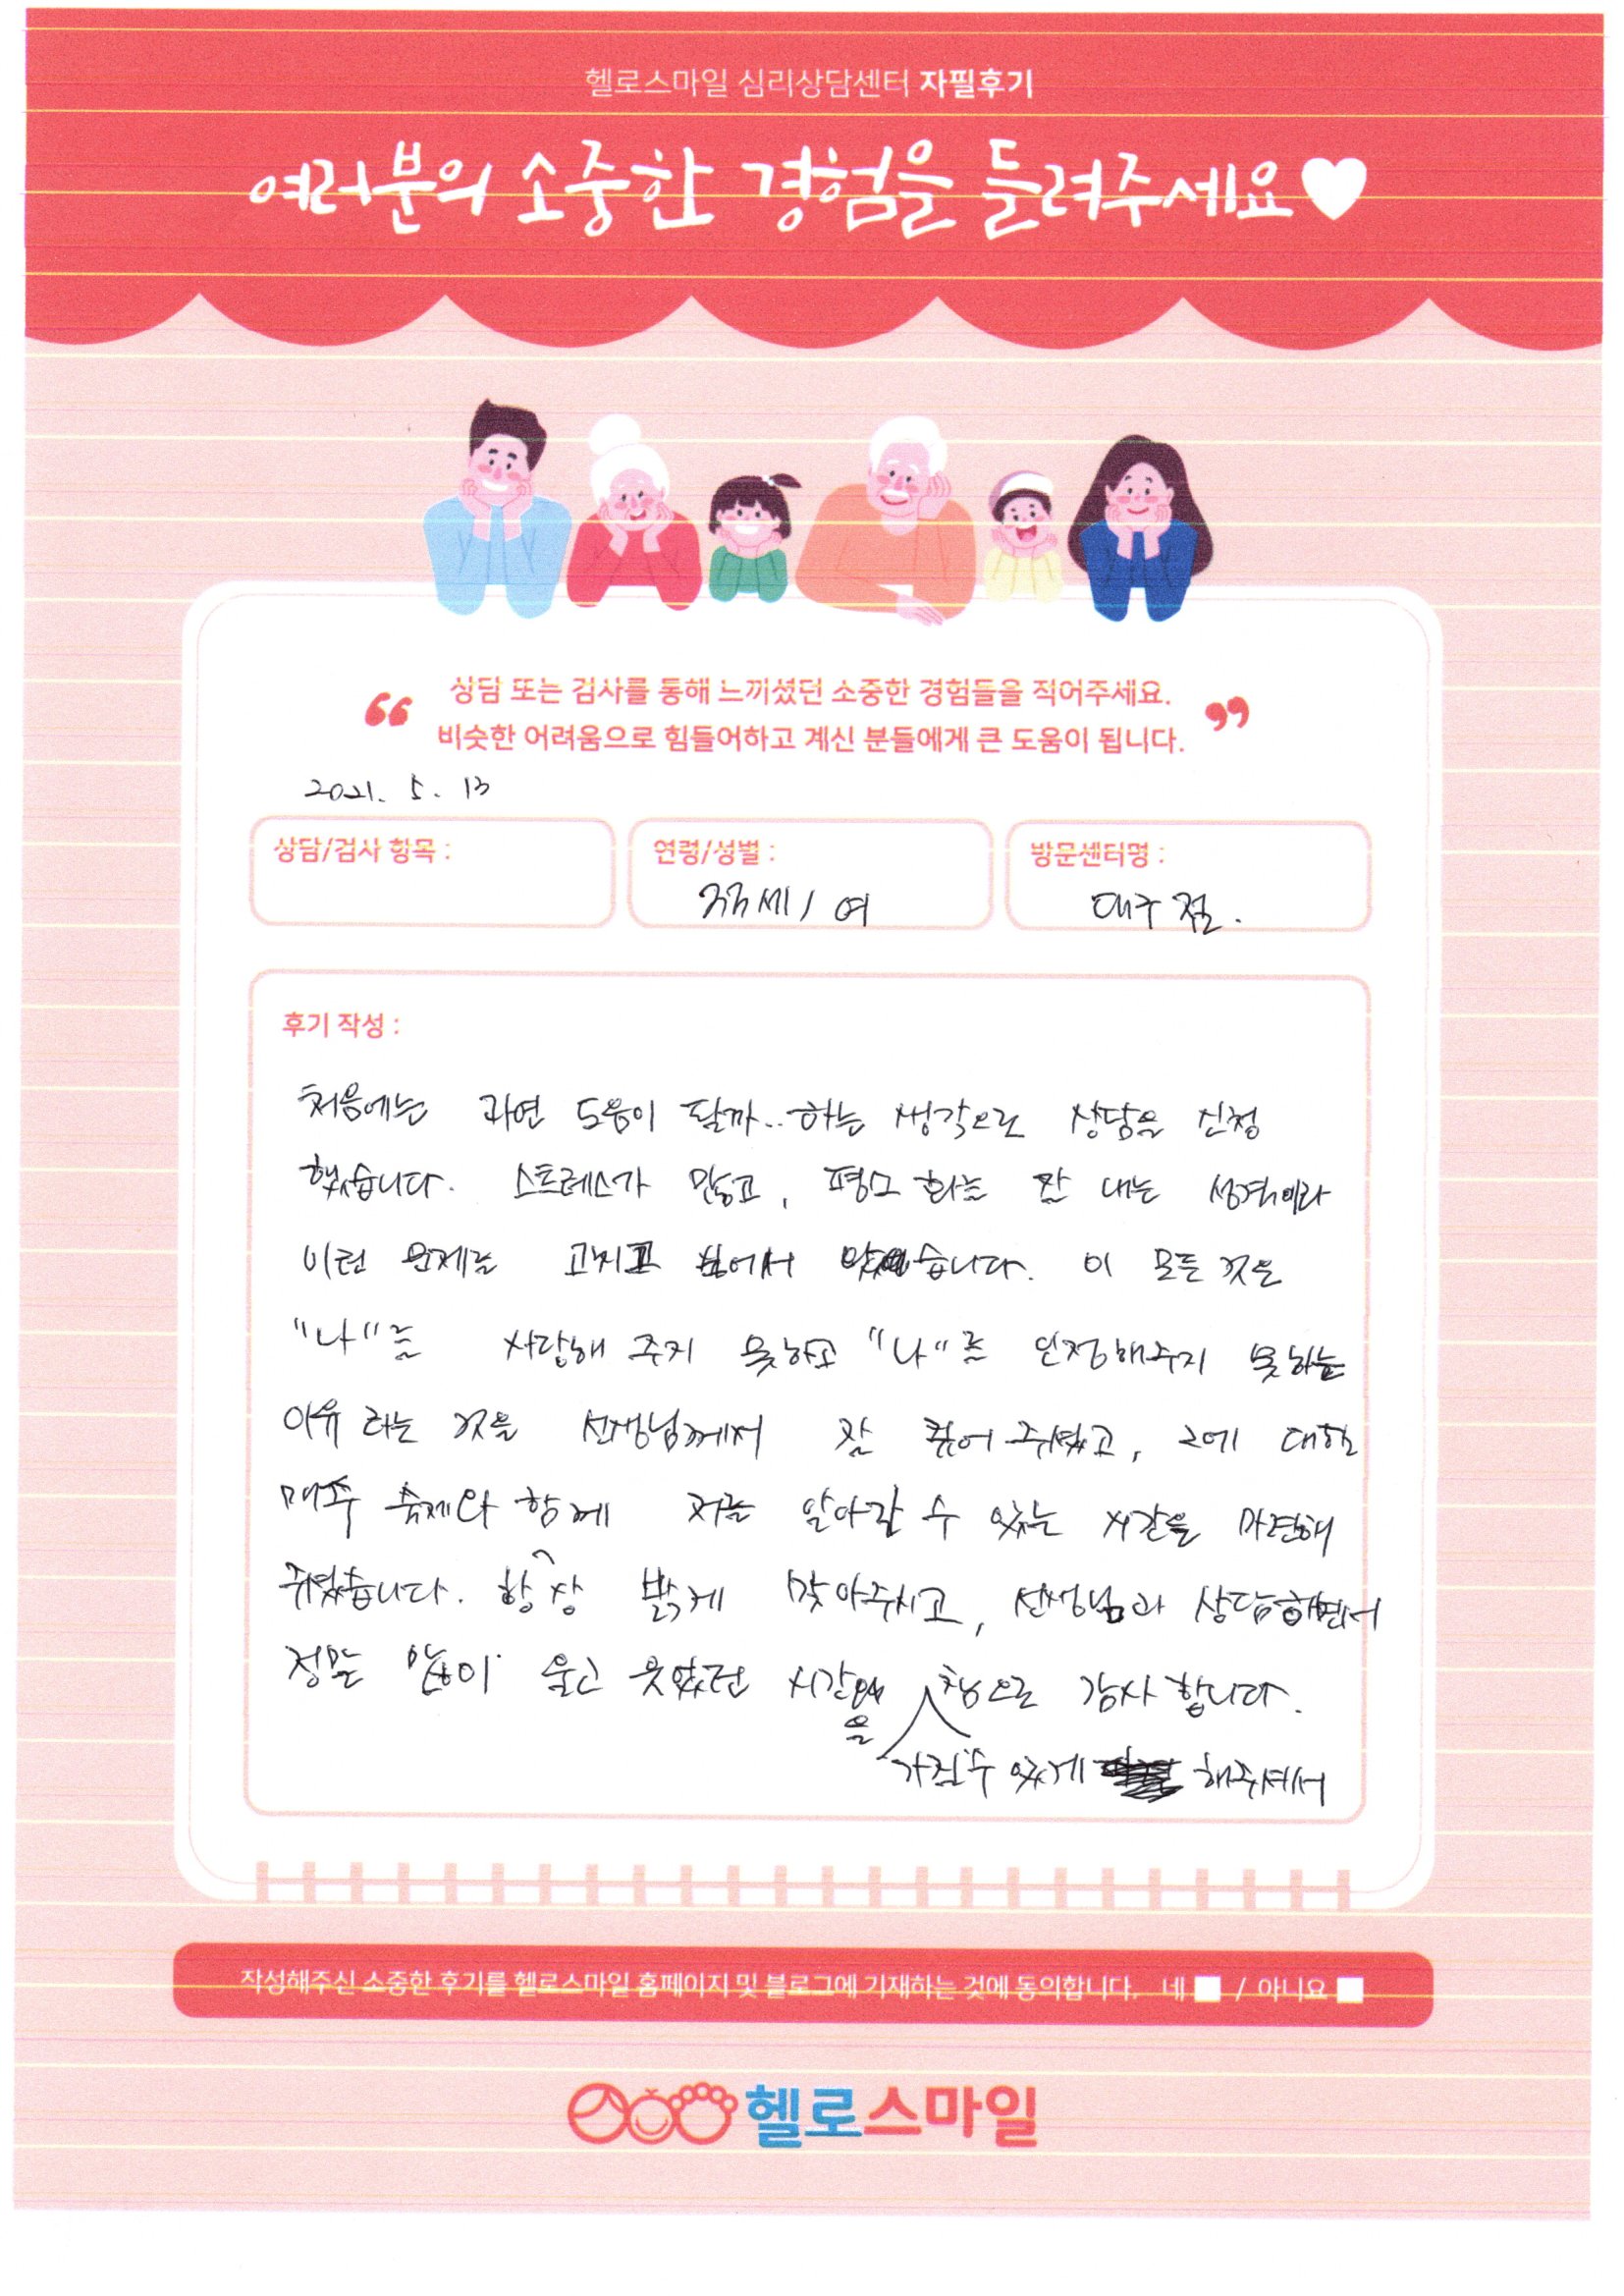 헬로스마일 심리상담센터 자필후기
여러분의 소중한 경험을 들려주세요♥
“ 상담 또는 검사를 통해 느끼셨던 소중한 경험들을 적어주세요. ”
비슷한 어려움으로 힘들어하고 계신 분들에게 큰 도움이 됩니다.
2021. 5. 13
상담/검사 항목 :
연령/성별 :
세 / 여
방문센터명 :
대구점.
후기 작성 :
처음에는 과연 도움이 될까.. 하는 생각으로 상담을 신청
했습니다. 스트레스가 많고, 평소 화를 잘 내는 성격이라
이런 문제를 고치고 싶어서 왔습니다. 이 모든 것은
"나"를 사랑해 주지 못하고 "나"를 인정해주지 못하는
이유 라는 것을 선생님께서 잘 짚어 주셨고, 그에 대한
매주 숙제와 함께 저를 알아갈 수 있는 시간을 마련해
주셨습니다. 항상 밝게 맞아주시고, 선생님과 상담하면서
정말 많이 울고 웃었던 시간을 가질 수 있게 해주셔서 참으로 감사합니다.
작성해주신 소중한 후기를 헬로스마일 홈페이지 및 블로그에 기재하는 것에 동의합니다. 네 / 아니요
헬로스마일